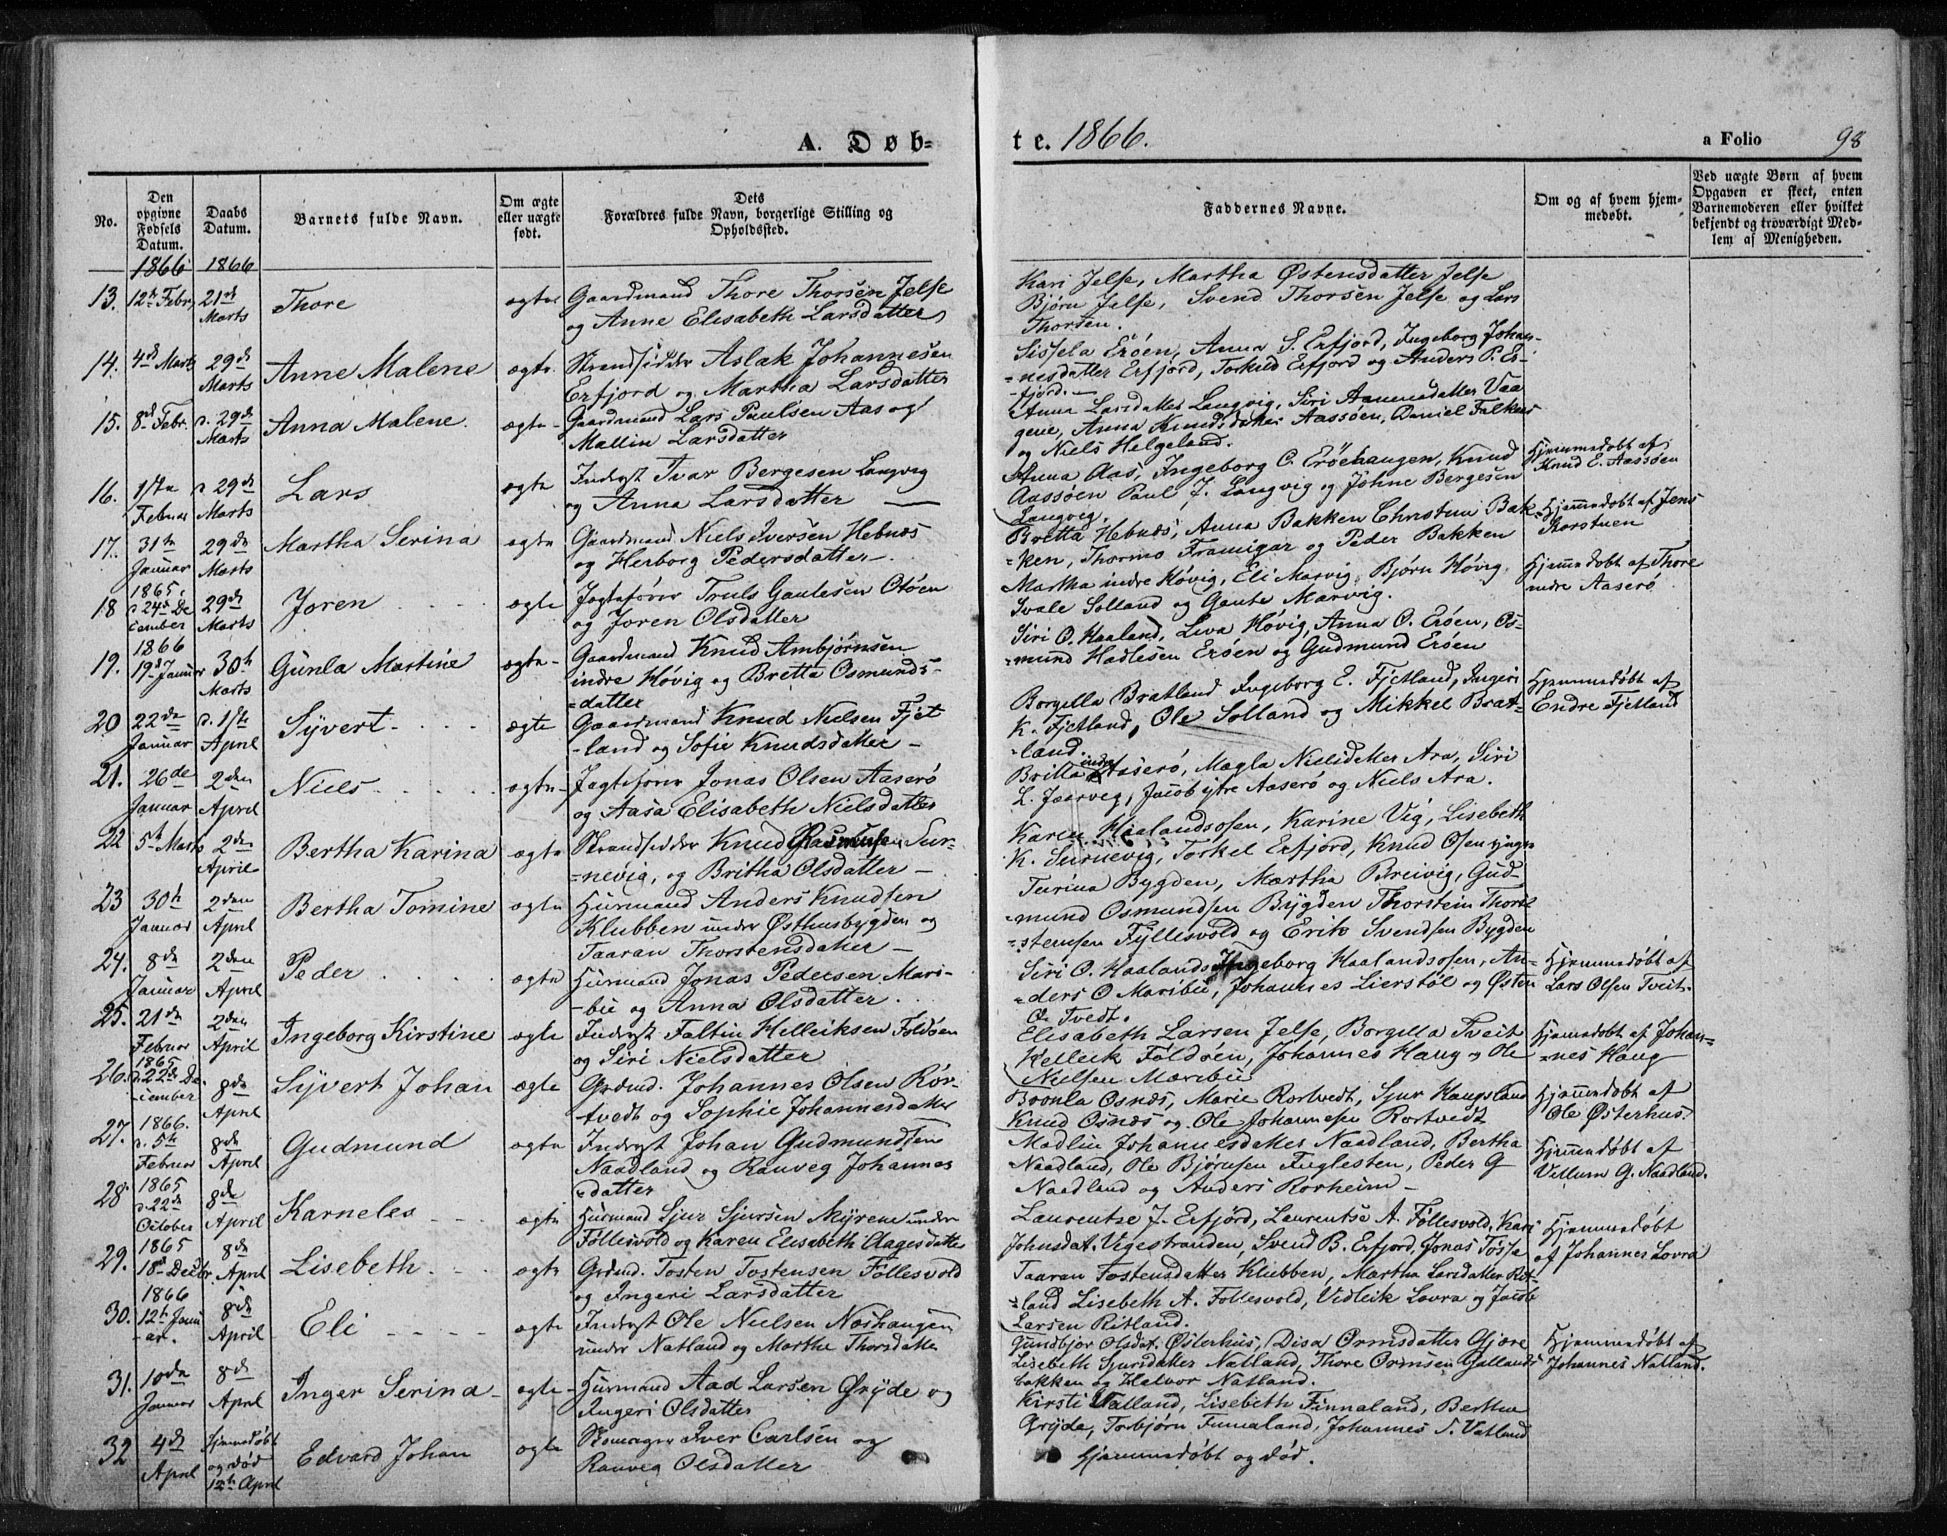 A. Døb-
te. 1866.
a Folio 98
No.
Den opgivne Fødsels Datum.
Daabs Datum.
Barnets fulde Navn.
Om ægte eller uægte født.
Dets Forældres fulde Navn, borgerlige Stilling og Opholdssted.
Faddernes Navne.
Om og af hvem hjemmedøbt.
Ved uægte Børn af hvem Opgaven er skeet, enten Barnemoderen eller hvilket bekjendt og troværdigt Medlem af Menigheden.
1866 1866
13. 12te Febr. 21de Marts Thore ægte Gaardmand Thore Thorsen Jelse
og Anne Elisabeth Larsdatter
Kari Jelse, Martha Østensdatter Jelse
Bjørn Jelse, Svend Thorsen Jelse og Lars
Thorsen.
14. 4de Marts 29de Marts Anne Malene ægte Strandsidder Aslak Johannesen
Erfjord og Martha Larsdatter
Sissela Erøen, Anna S. Erfjord, Ingeborg Johan-
=nesdatter Erfjord, Torkild Erfjord og Anders P. Er-
-fjord.
15. 8de Febr. 29de Marts Anna Malene. ægte Gaardmand Lars Paulsen Aas og
Mallin Larsdatter
Anna Larsdatter Langvig, Siri Aanensdatter Vaa-
gene, Anna Knudsdatter Aassøen, Daniel
og Niels Helgeland.
16. 1ste Februar 29de Marts Lars ægte Inderst Ivar Bergesen Langvig
og Anna Larsdatter
Anna Aas, Ingeborg O. Erøehaugen, Knud
Aassøen Paul J. Langvig og Johne Bergesen
Langvig.
Hjemmedøbt af
Knud E. Aassøen
17. 31te Januar 29de Marts Martha Serina ægte Gaardmand Niels Iversen Hebnæs
og Herborg Pedersdatter
Britta Hebnæs, Anna Bakken Christina Bak-
=ken, Thormo Framigar og Peder Bakken
Hjemmedøbt af Jens
18 1865. 24de December 29de Marts Joren ægte Jagtefører Truls Gautesen Otøen
og Joren Olsdatter
Martha indre Høvig, Eli Marvig, Bjørn Høvig,
Svale Solland og Gaute Marvig.
Hjemmedøbt af Thore
indre Aaserø
19. 1866 19de Januar 30te Marts Gunla Martine ægte Gaardmand Knud Ambjørnsen
indre Høvig og Britta Osmunds-
=datter
Siri O. Haaland, Liva Høvig, Anna O. Erøen, Os-
=mund Hadlesen Erøen og Gudmund Erøen
20 22de Januar 1ste April Syvert ægte Gaardmand Knud Nielsen Fjet-
-land og Sofie Knudsdatter
Borgilla Bratland Ingeborg E. Fjetland, Ingeri
K. Fjetland, Ole Solland og Mikkel Brat-
-land.
Hjemmedøbt af
Endre Fjetland
21. 26de Januar 2den April Niels ægte Jagtefører Jonas Olsen Aaserø
og Aasa Elisabeth Nielsdatter
Britta indre Aaserø, Magla Nielsdatter Ara, Siri
L. Jaarvig, Jacob ytre Aaserø og Niels Ara.
22 5te Marts 2den April Bertha Karina ægte Strandsidder Knud Rasmussen Sur-
=nevig, og Britha Olsdatter
Karen Haalandsosen, Karine Vig, Lisebeth
K. Surnevig, Torkel Erfjord, Knud Osen yngre
23 30te Januar 2den April Bertha Tomine ægte Huusmand Anders Knudsen
Klubben under Østhusbygden og
Taaran Thorstensdatter
Turina Bygden, Martha Breivig, Gud-
=mund Osmundsen Bygden Thorstein Thor-
=stensen Fyllesvold og Erik Svendsen Bygden
24. 8de Januar 2den April Peder ægte Huusmand Jonas Pedersen Mari-
-bu og Anna Olsdatter
Siri O. Haalands Ingeborg Haalandsosen, An-
=ders O Maribu, Johannes Lierstøl og Østen
O. Tvedt.
Hjemmedøbt af
Lars Olsen Tveit.
25. 21de Februar 2den April Ingeborg Kirstine ægte Inderst Faltin Helleiksen Foldøen
og Siri Nielsdatter
Elisabeth Larsen Jelse, Borgilla Tveit
Helleik Foldøen, Johannes Haug og Ole
Nielsen Maribu
Hjemmedøbt af Johan-
=nes Haug
26. 1865 22de December 8de April Syvert Johan ægte Grdmd. Johannes Olsen Rør-
tvedt og Sophie Johannesdatter
Osnæs, Marie Rortvedt, Sjur Haugsland
Knud Osnæs og Ole Johannesen Rortvedt
Hjemmedøbt af
Ole Østerhus
27. 1866. 5te Februar 8de April Gudmund ægte Inderst Johan Gudmundsen
Naadland og Ranveg Johannes
=datter
Madlin Johannesdatter Naadland, Bertha
Naadland, Ole Bjørnsen Fuglesten, Peder G
Naadland og Anders Rorheim
Hjemmedøbt af
Vellum G. Naadland.
28. 1865 22de October 8de April Karneles ægte Huusmand Sjur Sjursen Myrene under
Føllesvold og Karen Elisabeth Aagesdatter
Laurentse J. Erfjord, Laurentse A. Føllesvold, Kari
Johnsdat. Vigestranden, Svend B. Erfjord, Jonas
Hjemmedøbt
af Johannes Lovra
29. 1865 18de Decbr. 8de April Lisebeth ægte Grdmd. Tosten Tostensen Follesvold
og Ingeri Larsdatter
Taaran Tostensdatter Klubben, Martha Larsdatter Rit-
=land Lisebeth A. Follesvold, Vidleik Lovra og Jacob
Larsen Ritland.
30. 1866 12te Januar. 8de April Eli ægte Inderst Ole Nielsen Næshaugen
under Natland og Marthe Thorsdatter
Gundbjor Olsdat. Østerhus, Disa Ormsdatter Gjære
Lisebeth Sjursdatter Natland, Thore Ormsen Gallands-
bakken og Halvor Natland.
Hjemmedøbt af
Johannes Natland.
31. 10de Januar 8de April Inger Serina ægte Huusmand Aad Larsen Gryde og
Ingeri Olsdatter
Kirsti Vatland, Lisebeth Finnaland, Bertha
Gryde, Torbjørn Finnaland, Johannes S. Vatland
32 4de April Hjemmedøbt og død 12te April Edvard Johan ægte Skomager Iver Carlsen og
Ranveg Olsdatter
Hjemmedøbt og død.